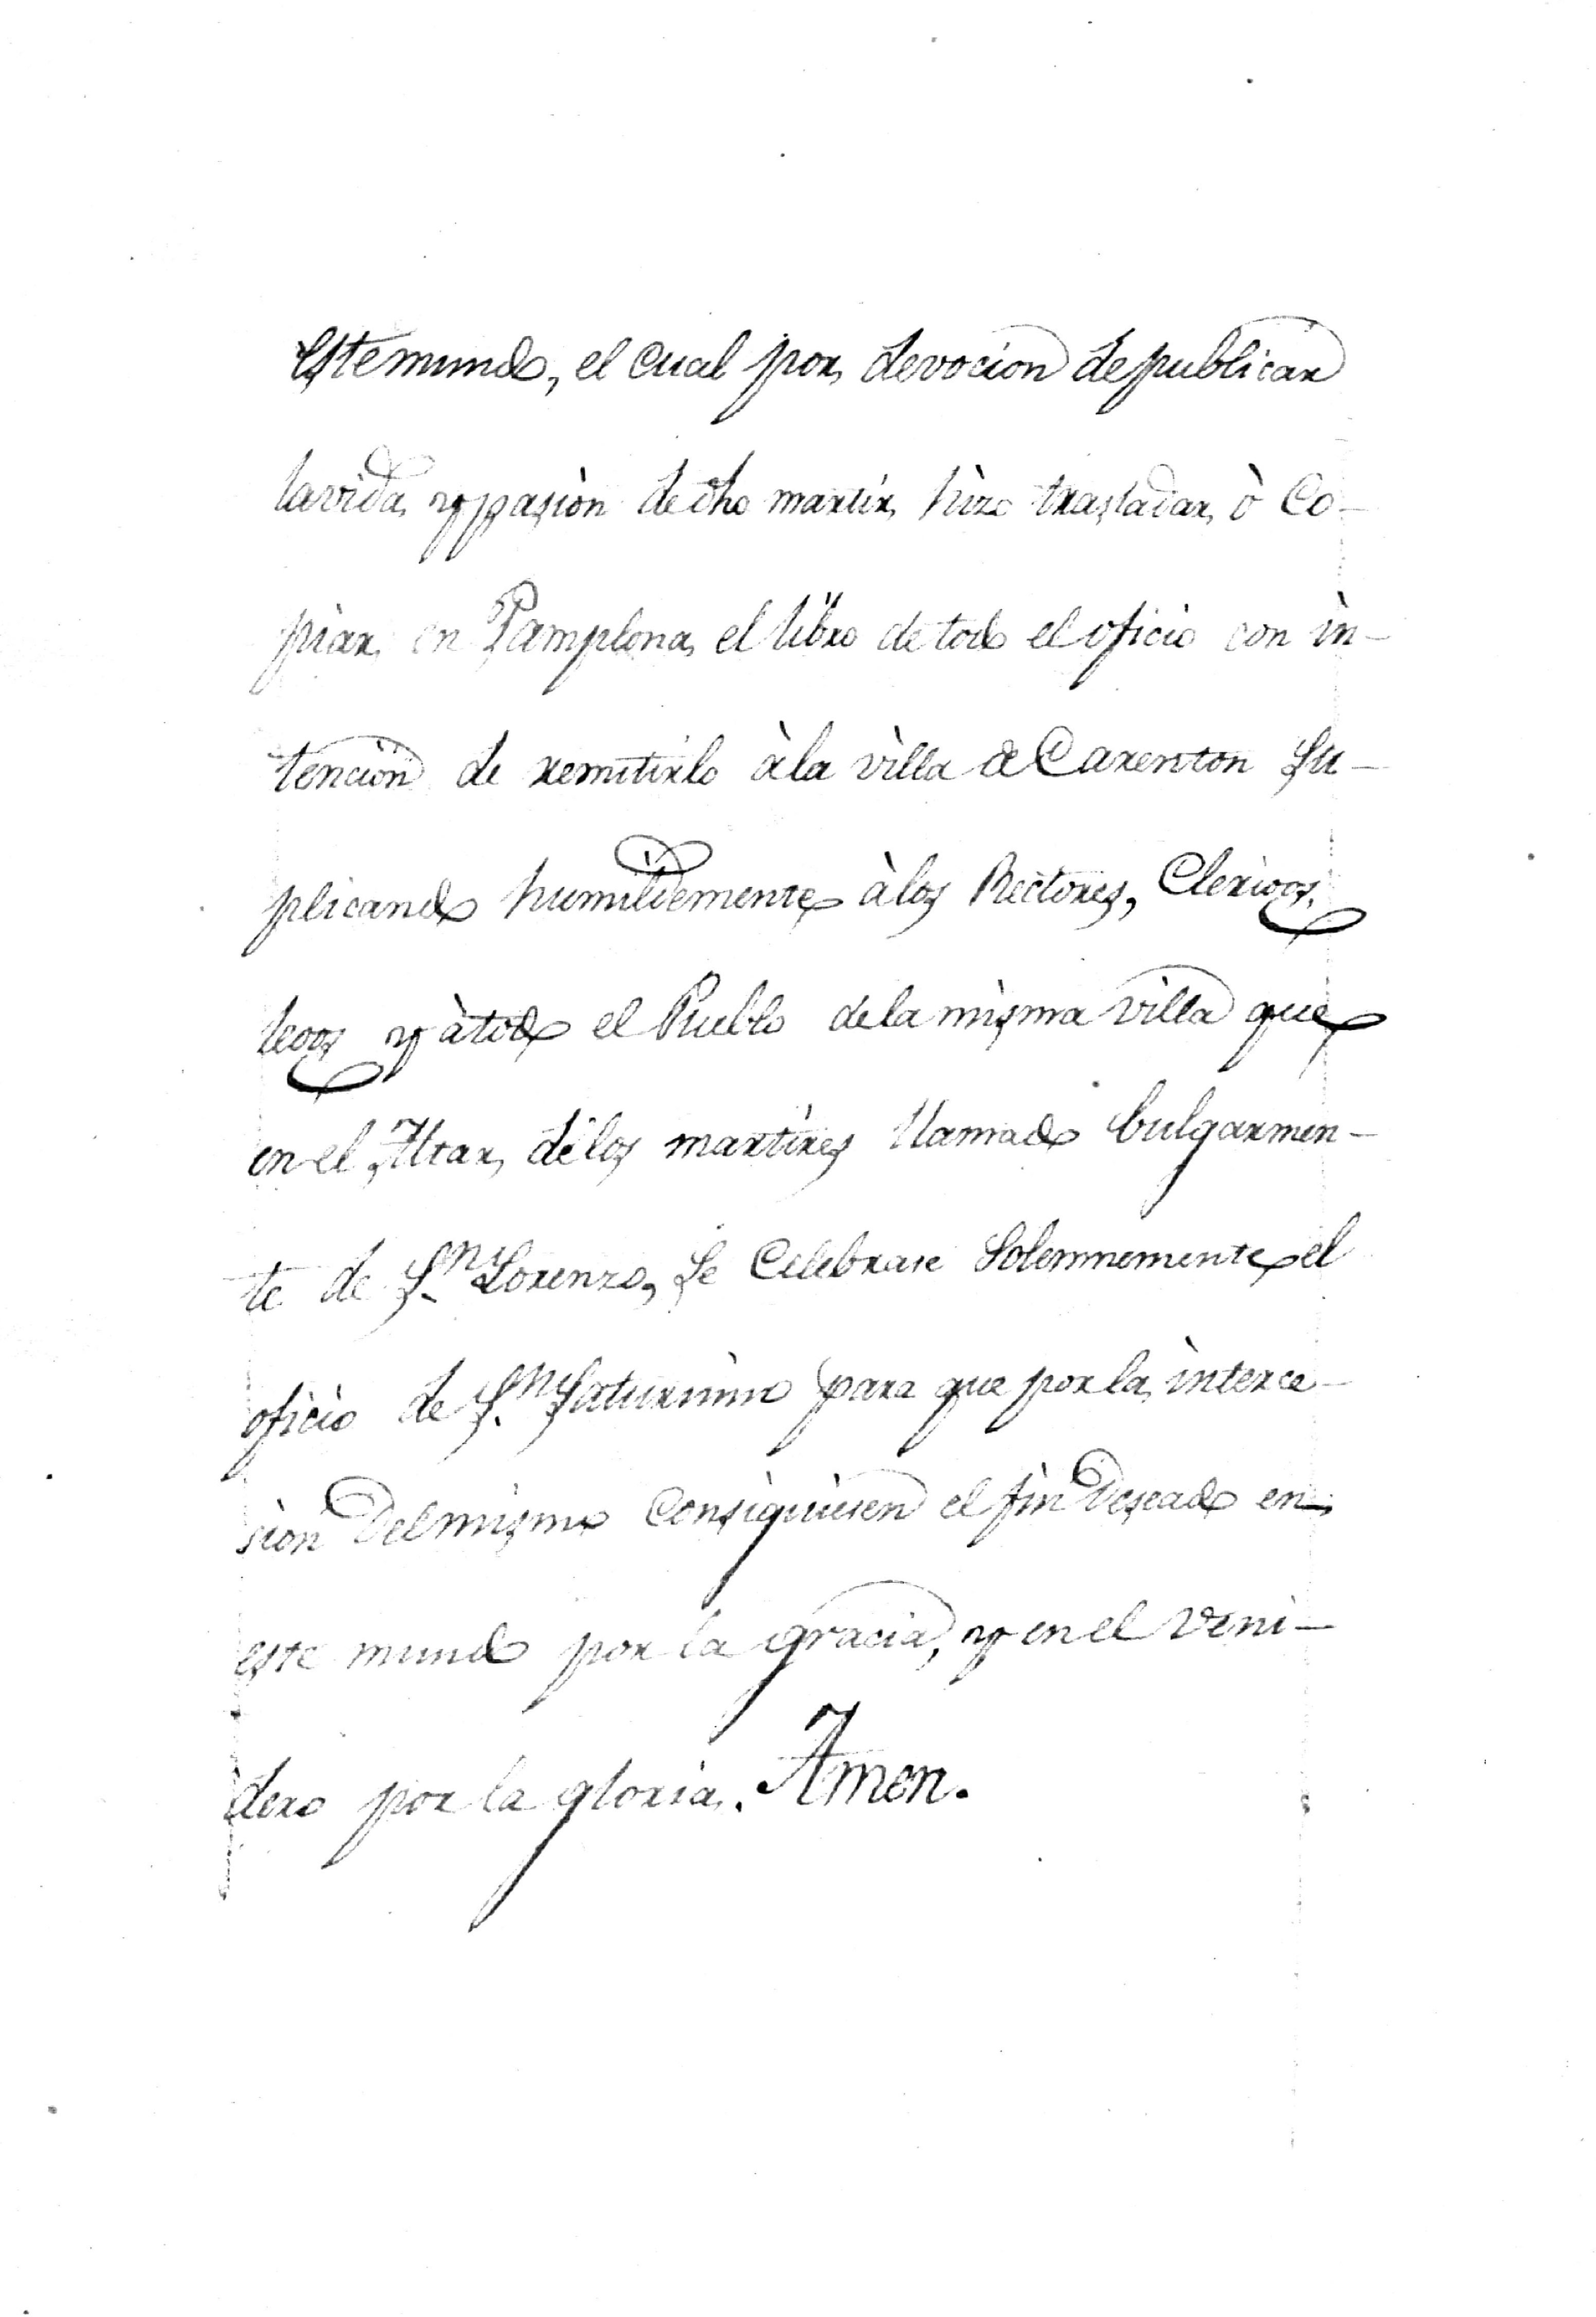 Este mundo, el cual por devocion de publicar
la vida, y pasiòn de dho martir, hizo trasladar, ò Co-
piar en Pamplona, el libro de todo el oficio con in-
tenciòn de remitirlo à la villa de Carenton Su-
plicando humildemente à los Rectores, Clerigos,
legos y à todo el Pueblo de la misma villa que
en el Altar, de los martires llamado bulgarmen-
te de Sn. Lorenzo, se Celebrase Solemnemente el
oficio de Sn. Saturnino para que por la interce-
sion del mismo Consiguiesen el fin deseado en
este mundo por la gracia, y en el veni-
dero por la gloria. Amen.